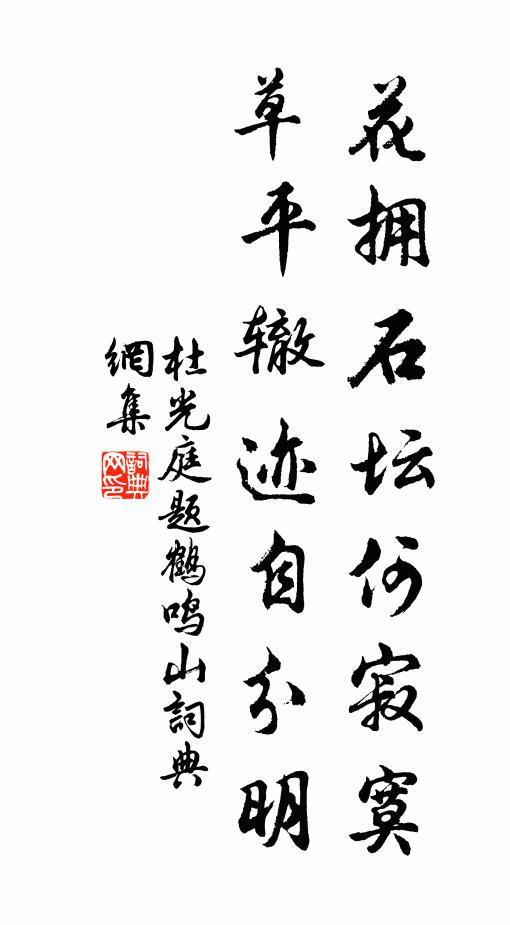 花拥石坛何寂寞
草平辙迹自分明
杜光庭题鹤鸣山词典
網集
詞典网印